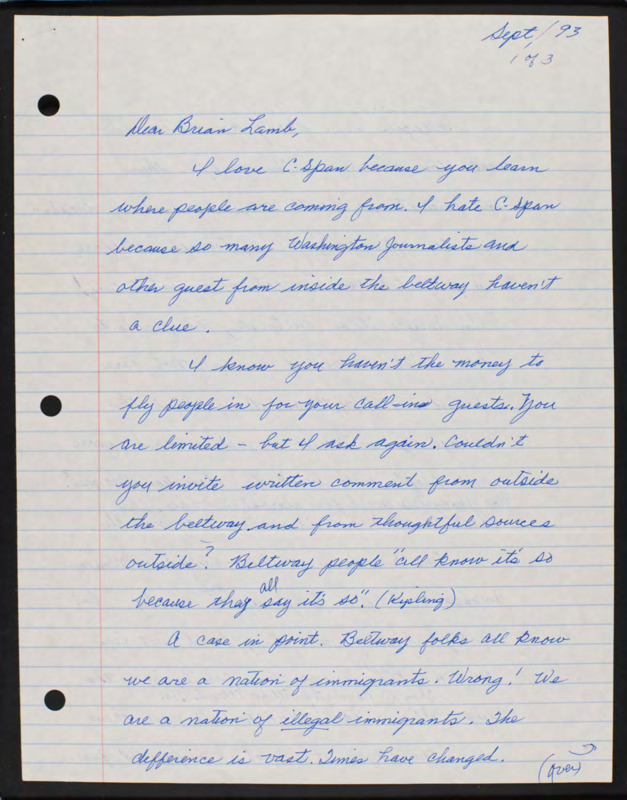 Sept/93
1 of 3
Dear Brian Lamb,
I love C-Span because you learn
where people are coming from. I hate C-Span
because so many Washington Journalists and
other guest from inside the beltway haven't
a clue.
I know you haven't the money to
fly people in for your call-ins guests. You
are limited - but I ask again. Couldn't
you invite written comment from outside
the beltway and from thoughtful sources
outside? Beltway people "all know it's so
because they all say it's so". (Kipling)
A case in point. Beltway folks all know
we are a nation of immigrants. Wrong! We
are a nation of illegal immigrants. The
difference is vast. Times have changed.
(over)